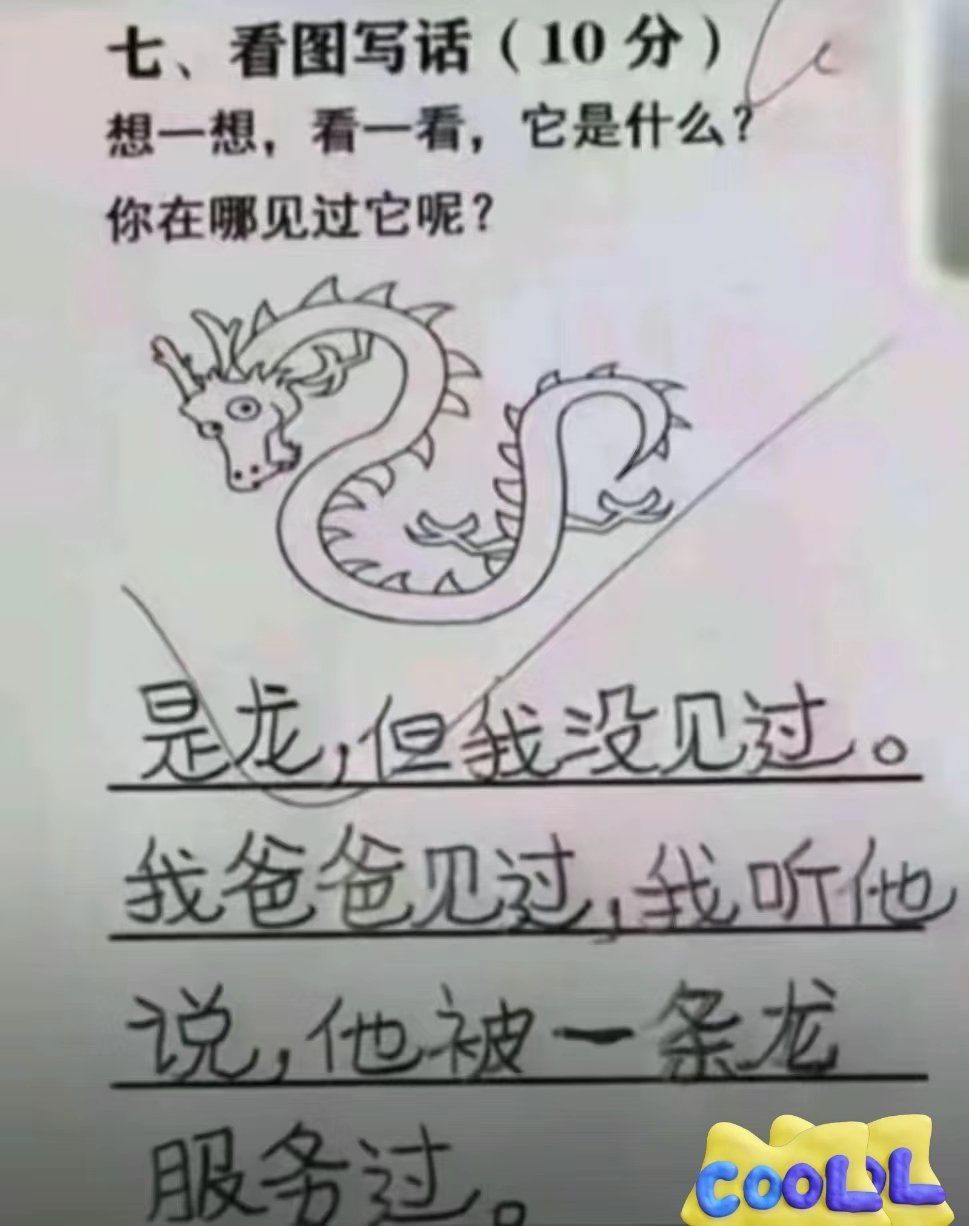 七、看图写话（10 分）
想一想，看一看，它是什么？
你在哪见过它呢？
是龙，但我没见过。
我爸爸见过，我听他
说，他被一条龙
服务过。
COOLL